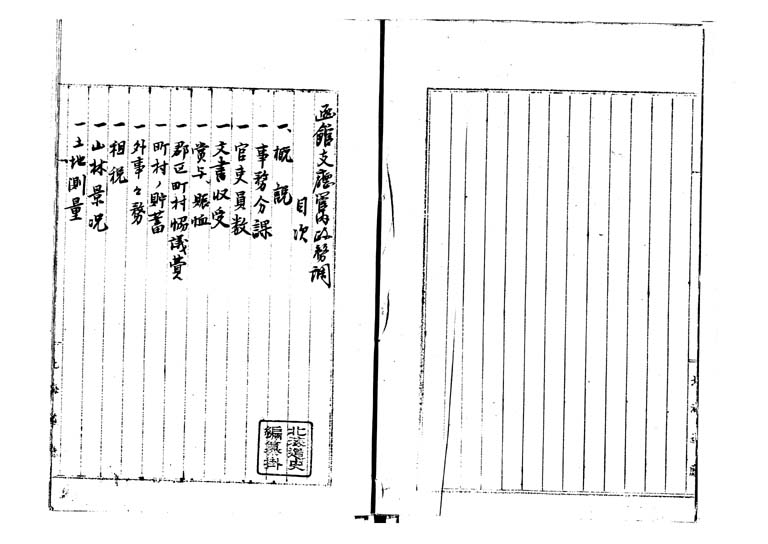 函館支廳管内政務調
目次
一、概説
一 事務分課
一 官吏員数
一 文書収受
一 賞与、賑恤
一 郡区町村協議費
一 町村ノ貯蓄
一 外事々務
一 租税
一 山林景况
一 土地測量
北海道史
編纂掛